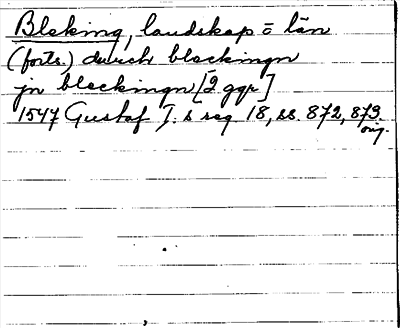 Bleking, landskap o län
(forts.) durch bleckingn
jn bleckingn [2 ggr]
1547 Gustaf I:s reg 18, ss. 872, 873.
orig.